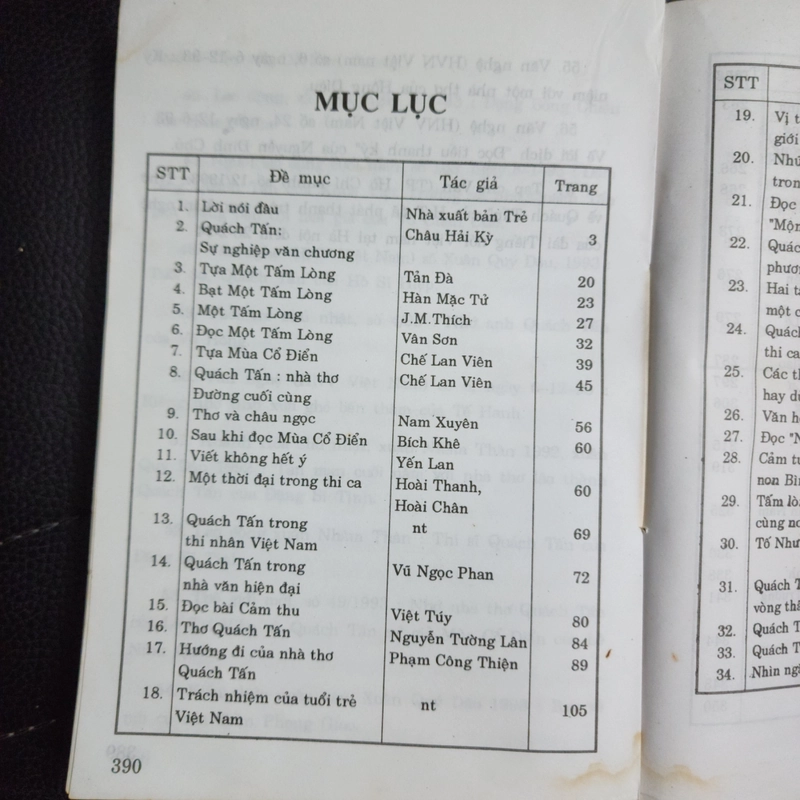 MỤC LỤC
STT Đề mục Tác giả Trang
1. Lời nói đầu Nhà xuất bản Trẻ
2. Quách Tấn: Châu Hải Kỳ 3
Sự nghiệp văn chương
3. Tựa Một Tấm Lòng Tản Đà 20
4. Bạt Một Tấm Lòng Hàn Mặc Tử 23
5. Một Tấm Lòng J.M.Thích 27
6. Đọc Một Tấm Lòng Vân Sơn 32
7. Tựa Mùa Cổ Điển Chế Lan Viên 39
8. Quách Tấn : nhà thơ Chế Lan Viên 45
Đường cuối cùng
9. Thơ và châu ngọc Nam Xuyên 56
10. Sau khi đọc Mùa Cổ Điển Bích Khê 60
11. Viết không hết ý Yến Lan
12. Một thời đại trong thi ca Hoài Thanh, 60
Hoài Chân
13. Quách Tấn trong nt 69
thi nhân Việt Nam
14. Quách Tấn trong Vũ Ngọc Phan 72
nhà văn hiện đại
15. Đọc bài Cảm thu Việt Túy 80
16. Thơ Quách Tấn Nguyễn Tường Lân 84
17. Hướng đi của nhà thơ Phạm Công Thiện 89
Quách Tấn
18. Trách nhiệm của tuổi trẻ nt 105
Việt Nam
390
STT
19. Vị t
giới
20. Nhứ
tron
21. Đọc
"Mộn
22. Quác
phươ
23. Hai tá
một c
24. Quách
thi ca
25. Các th
hay dù
26. Văn h
27. Đọc "N
28. Cảm tư
non Bìn
29. Tấm lòn
cùng no
30. Tố Như
31. Quách T
vòng thà
32. Quách T
33. Quách T
34. Nhìn ngà